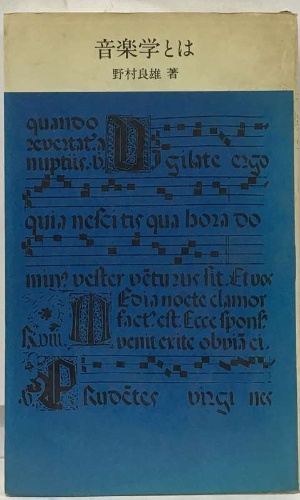 音楽学とは
野村良雄 著
quando
revertat.a
nuptiis.℣. Vigilate ergo
quia nescitis qua hora do
min⁹ vester vēturus sit. Et vox
Media nocte clamor
fact⁹. est. Ecce spons⁹
xviii. venit exite obviā ei.
℣. Prudētes virgines